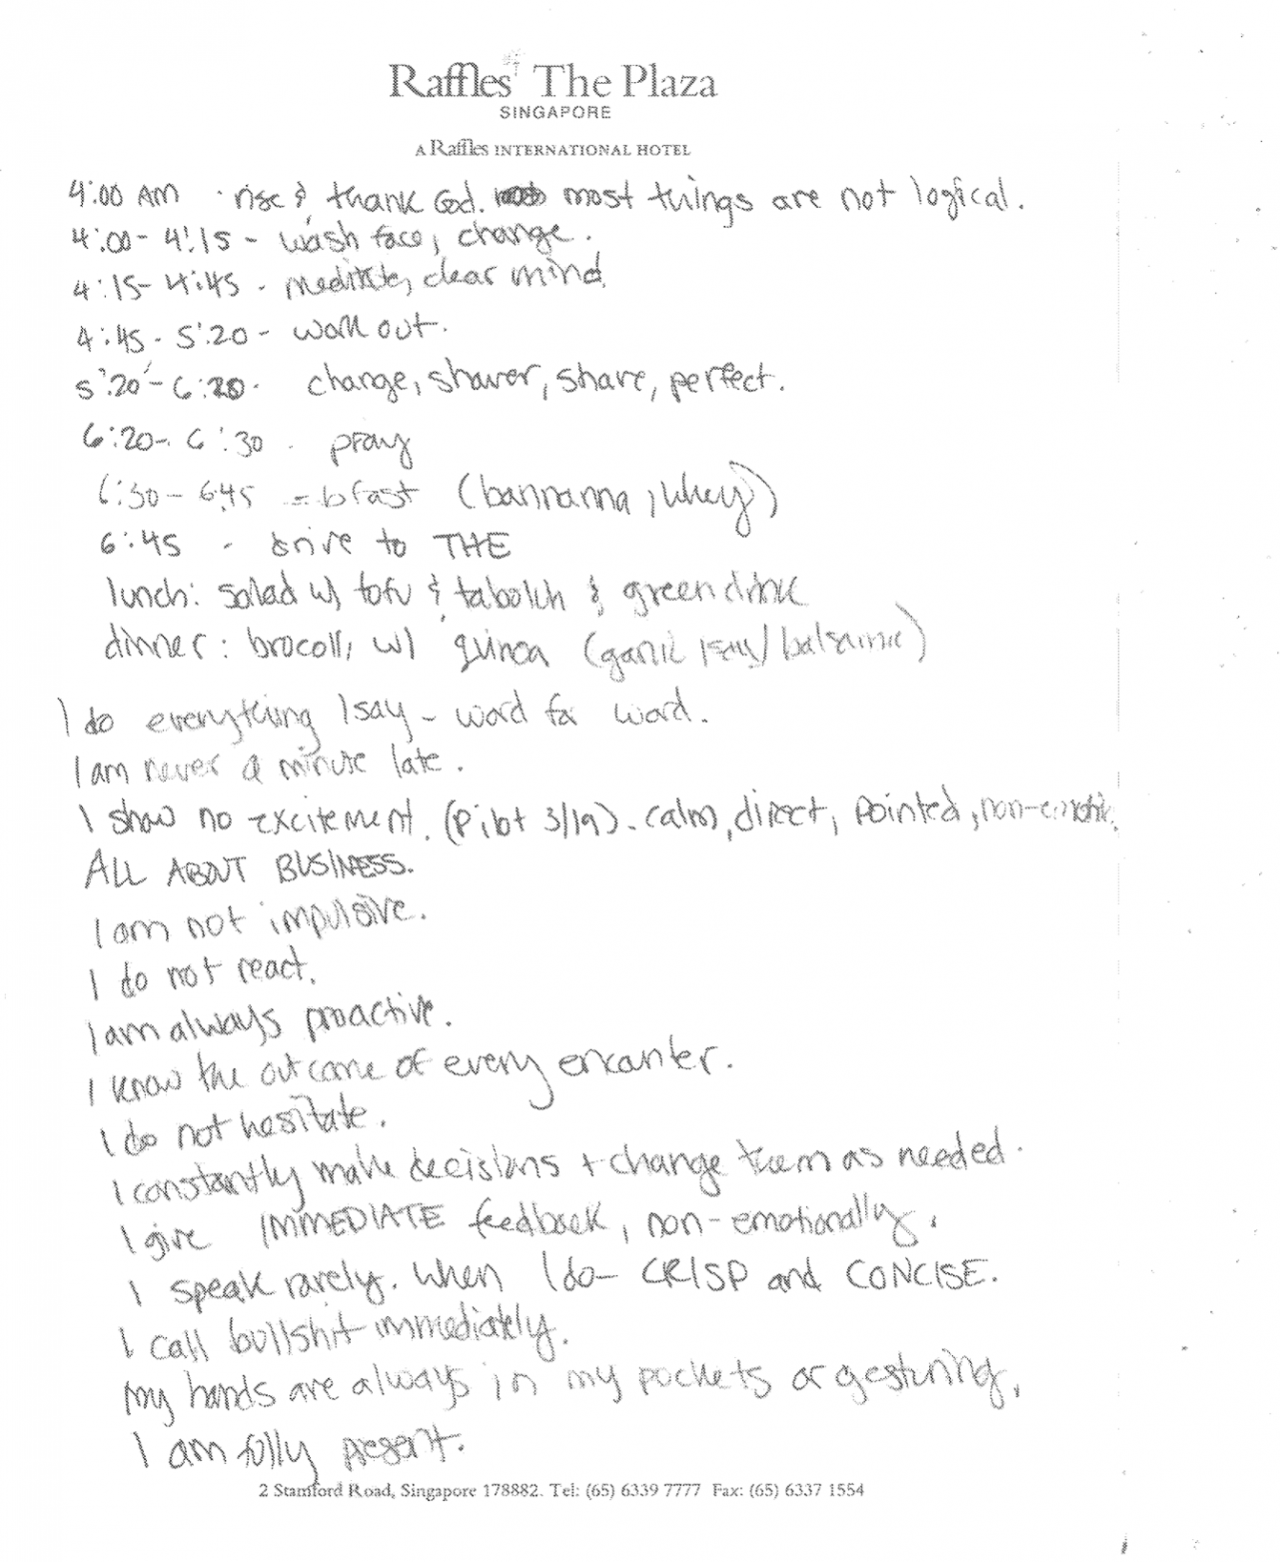 Raffles The Plaza
SINGAPORE
A Raffles INTERNATIONAL HOTEL
4:00 AM - rise & thank God. most things are not logical.
4:00 - 4:15 - wash face, change.
4:15 - 4:45 - meditate, clear mind.
4:45 - 5:20 - work out.
5:20 - 6:20 - change, shower, shave, perfect.
6:20 - 6:30 - pray
6:30 - 6:45 - bfast (bannanna, whey)
6:45 - drive to THE
lunch: salad w/ tofu & & green drink
dinner: brocolli w/ quinoa (/balsamic)
I do everything I say - word for word.
I am never a minute late.
I show no excitement. calm, direct, pointed, non-emotional.
ALL ABOUT BUSINESS.
I am not impulsive.
I do not react.
I am always proactive.
I know the outcome of every encounter.
I do not hesitate.
I constantly make decisions + change them as needed.
I give IMMEDIATE feedback, non-emotionally.
I speak rarely. When I do - CRISP and CONCISE.
I call bullshit immediately.
My hands are always in my pockets or gesturing.
I am fully present.
2 Stamford Road, Singapore 178882. Tel: (65) 6339 7777 Fax: (65) 6337 1554